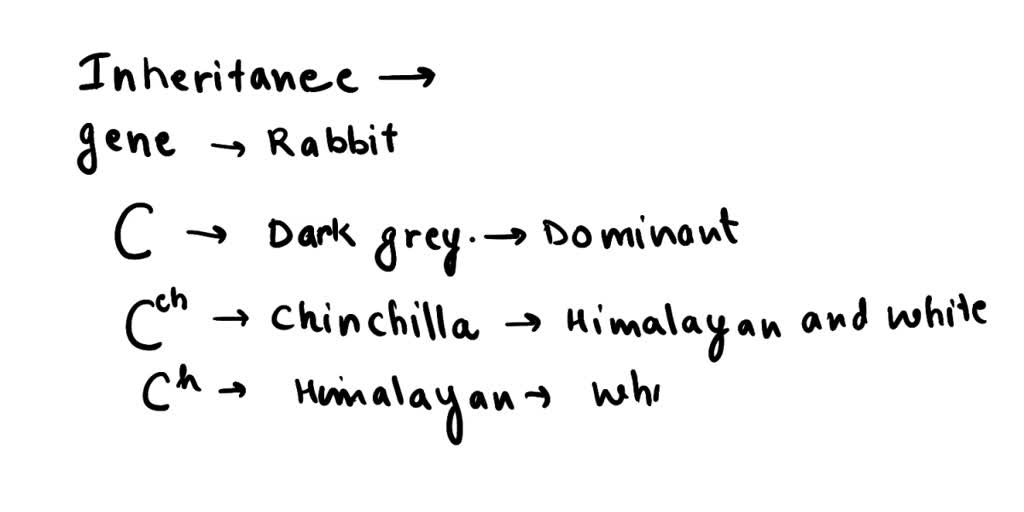 Inheritance →
gene → Rabbit
C → Dark grey. → Dominant
Cch → Chinchilla → Himalayan and white
Ch → Himalayan → Whi